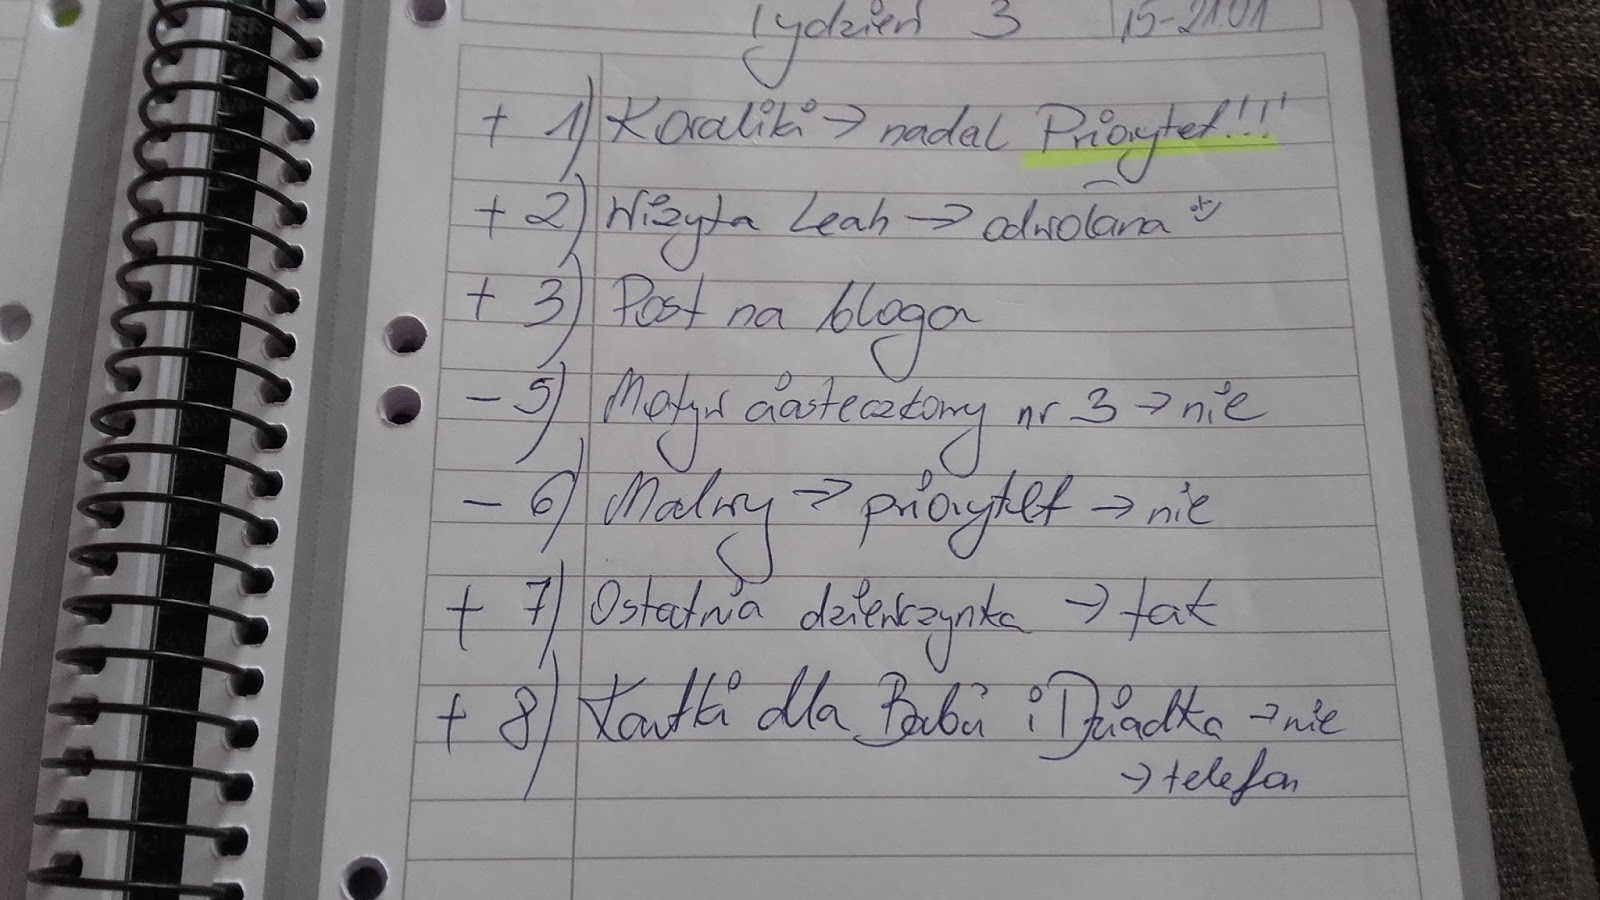 Tydzień 3 15-21.01
+ 1) Koraliki → nadal Priorytet!!!
+ 2) Wizyta Leah → odwołana
+ 3) Post na bloga
- 5) Motyw ciasteczkowy nr 3 → nie
- 6) Malwy → priorytet → nie
+ 7) Ostatnia dziewczynka → tak
+ 8) Kartki dla Babci i Dziadka → nie
→ telefon